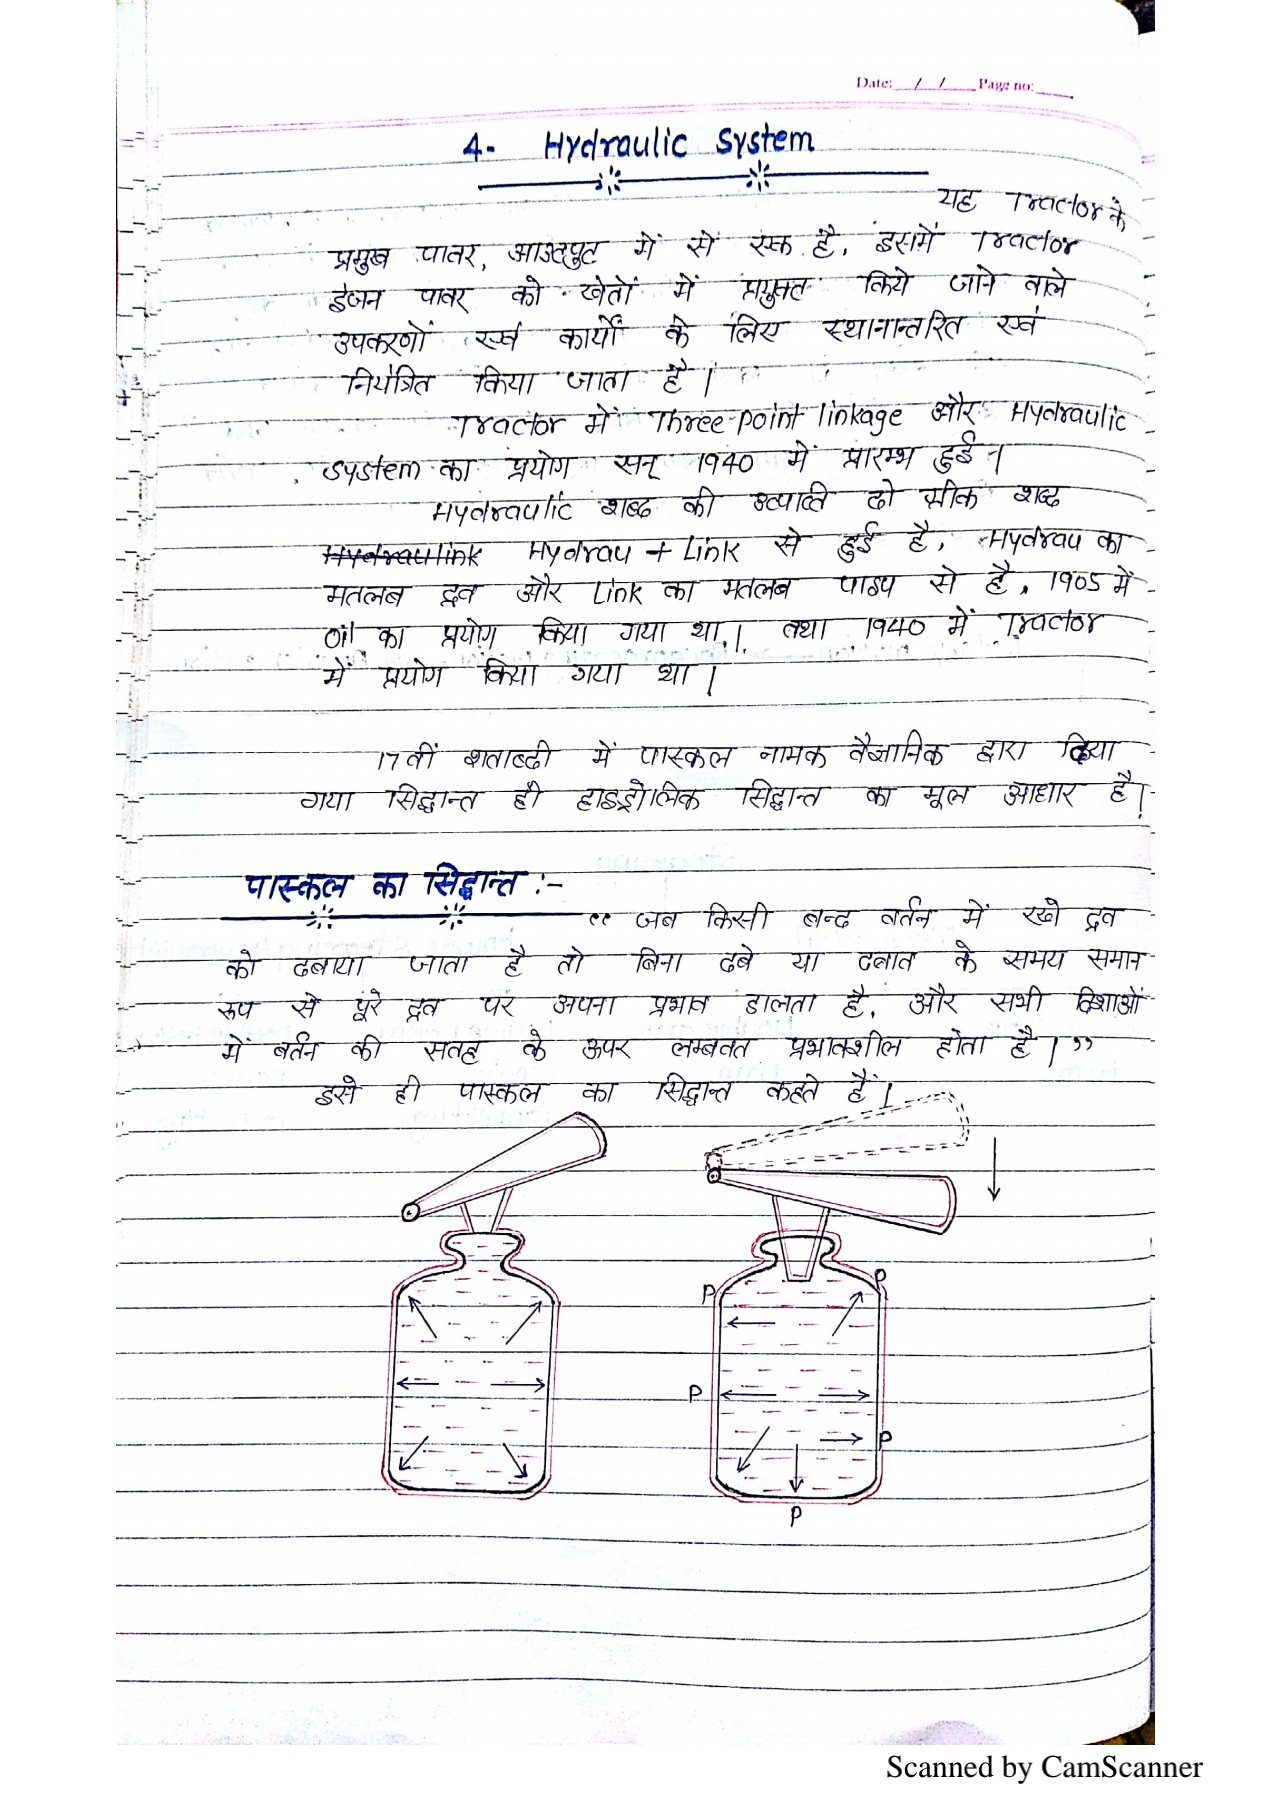 Date: __/__/____ Page no: ____
4- Hydraulic System
यह Tractor के
प्रमुख पावर, आउटपुट में से एक है, इसमें Tractor
इंजन पावर को खेतों में प्रयुक्त किये जाने वाले
उपकरणों एवं कार्यों के लिए स्थानान्तरित एवं
नियंत्रित किया जाता है।
Tractor में Three-point linkage और Hydraulic
System का प्रयोग सन् 1940 में प्रारम्भ हुई।
Hydraulic शब्द की उत्पत्ति दो ग्रीक शब्द
Hydraulink Hydrau + Link से हुई है, Hydrau का
मतलब द्रव और Link का मतलब पाइप से है, 1905 में
Oil का प्रयोग किया गया था। तथा 1940 में Tractor
में प्रयोग किया गया था।
17वीं शताब्दी में पास्कल नामक वैज्ञानिक द्वारा दिया
गया सिद्धान्त ही हाइड्रोलिक सिद्धान्त का मूल आधार है।
पास्कल का सिद्धान्त :-
“ जब किसी बन्द बर्तन में रखे द्रव
को दबाया जाता है तो बिना दबे या दबाव के समय समान
रूप से पूरे द्रव पर अपना प्रभाव डालता है, और सभी दिशाओं
में बर्तन की सतह के ऊपर लम्बवत प्रभावशील होता है। ”
इसे ही पास्कल का सिद्धान्त कहते हैं।
P P
P
P
P
Scanned by CamScanner